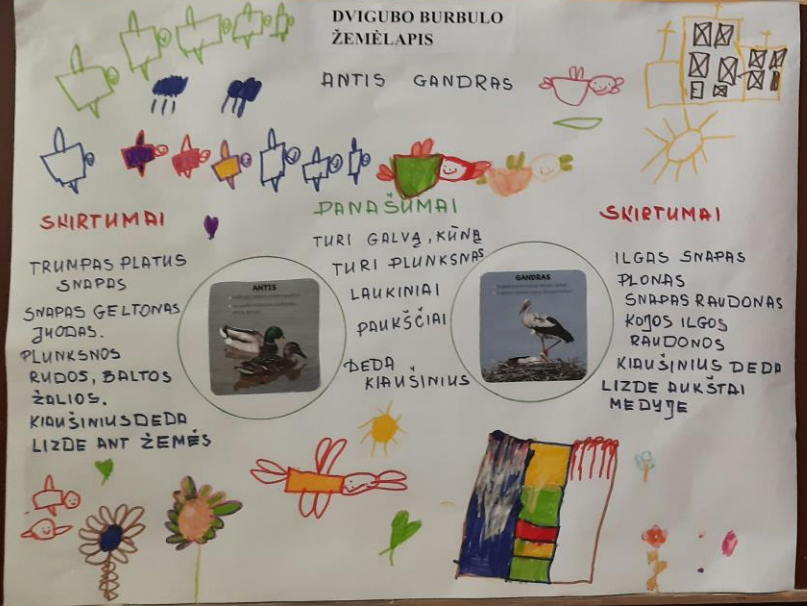 DVIGUBO BURBULO
ŽEMĖLAPIS
ANTIS GANDRAS
SKIRTUMAI
TRUMPAS PLATUS
SNAPAS
SNAPAS GELTONAS
JUODAS.
PLUNKSNOS
RUDOS, BALTOS
ŽALIOS.
KIAUŠINIUS DEDA
LIZDE ANT ŽEMĖS
ANTIS
PANAŠUMAI
TURI GALVĄ, KŪNĄ
TURI PLUNKSNAS
LAUKINIAI
PAUKŠČIAI
DEDA
KIAUŠINIUS
GANDRAS
SKIRTUMAI
ILGAS SNAPAS
PLONAS
SNAPAS RAUDONAS
KOJOS ILGOS
RAUDONOS
KIAUŠINIUS DEDA
LIZDE AUKŠTAI
MEDYJE